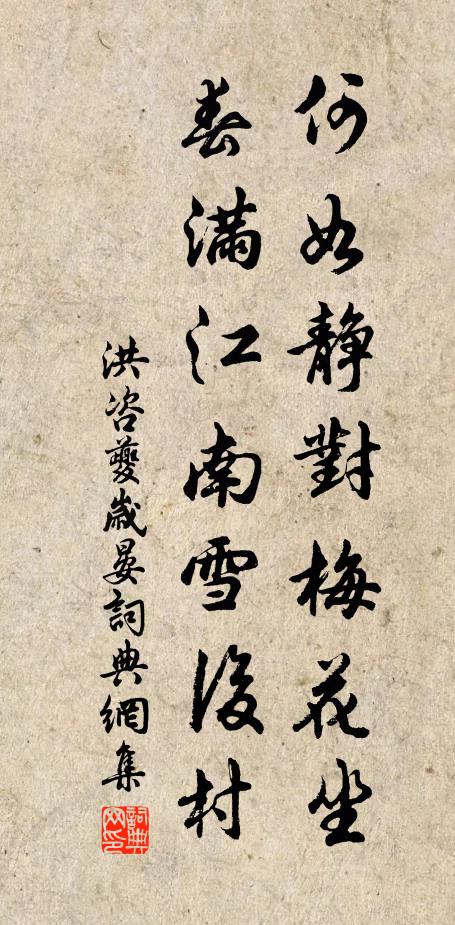 何如靜對梅花坐
春滿江南雪後村
洪咨夔歲晏詞典網集
詞典網印